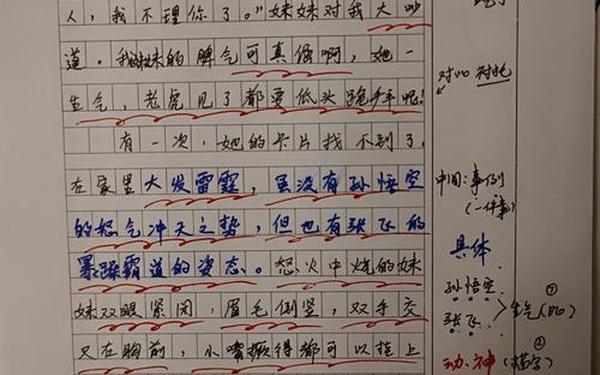 人，我不理你了。”妹妹对我大吵
道。我妹妹的脾气可真倔啊，她一
生气，老虎见了都要低头 呢！
有一次，她的卡片找不到了，
在家里大发雷霆，虽没有孙悟空
的怒气冲天之势，但也有张飞的
暴躁霸道的姿态。怒火中烧的妹
妹双眼紧闭，眉毛倒竖，双手交
叉在胸前，小嘴撅得都可以挂上
衬托
中间：事例
（一件事）
具体
孙悟空
张飞
生气
①
②
动、神（描写）